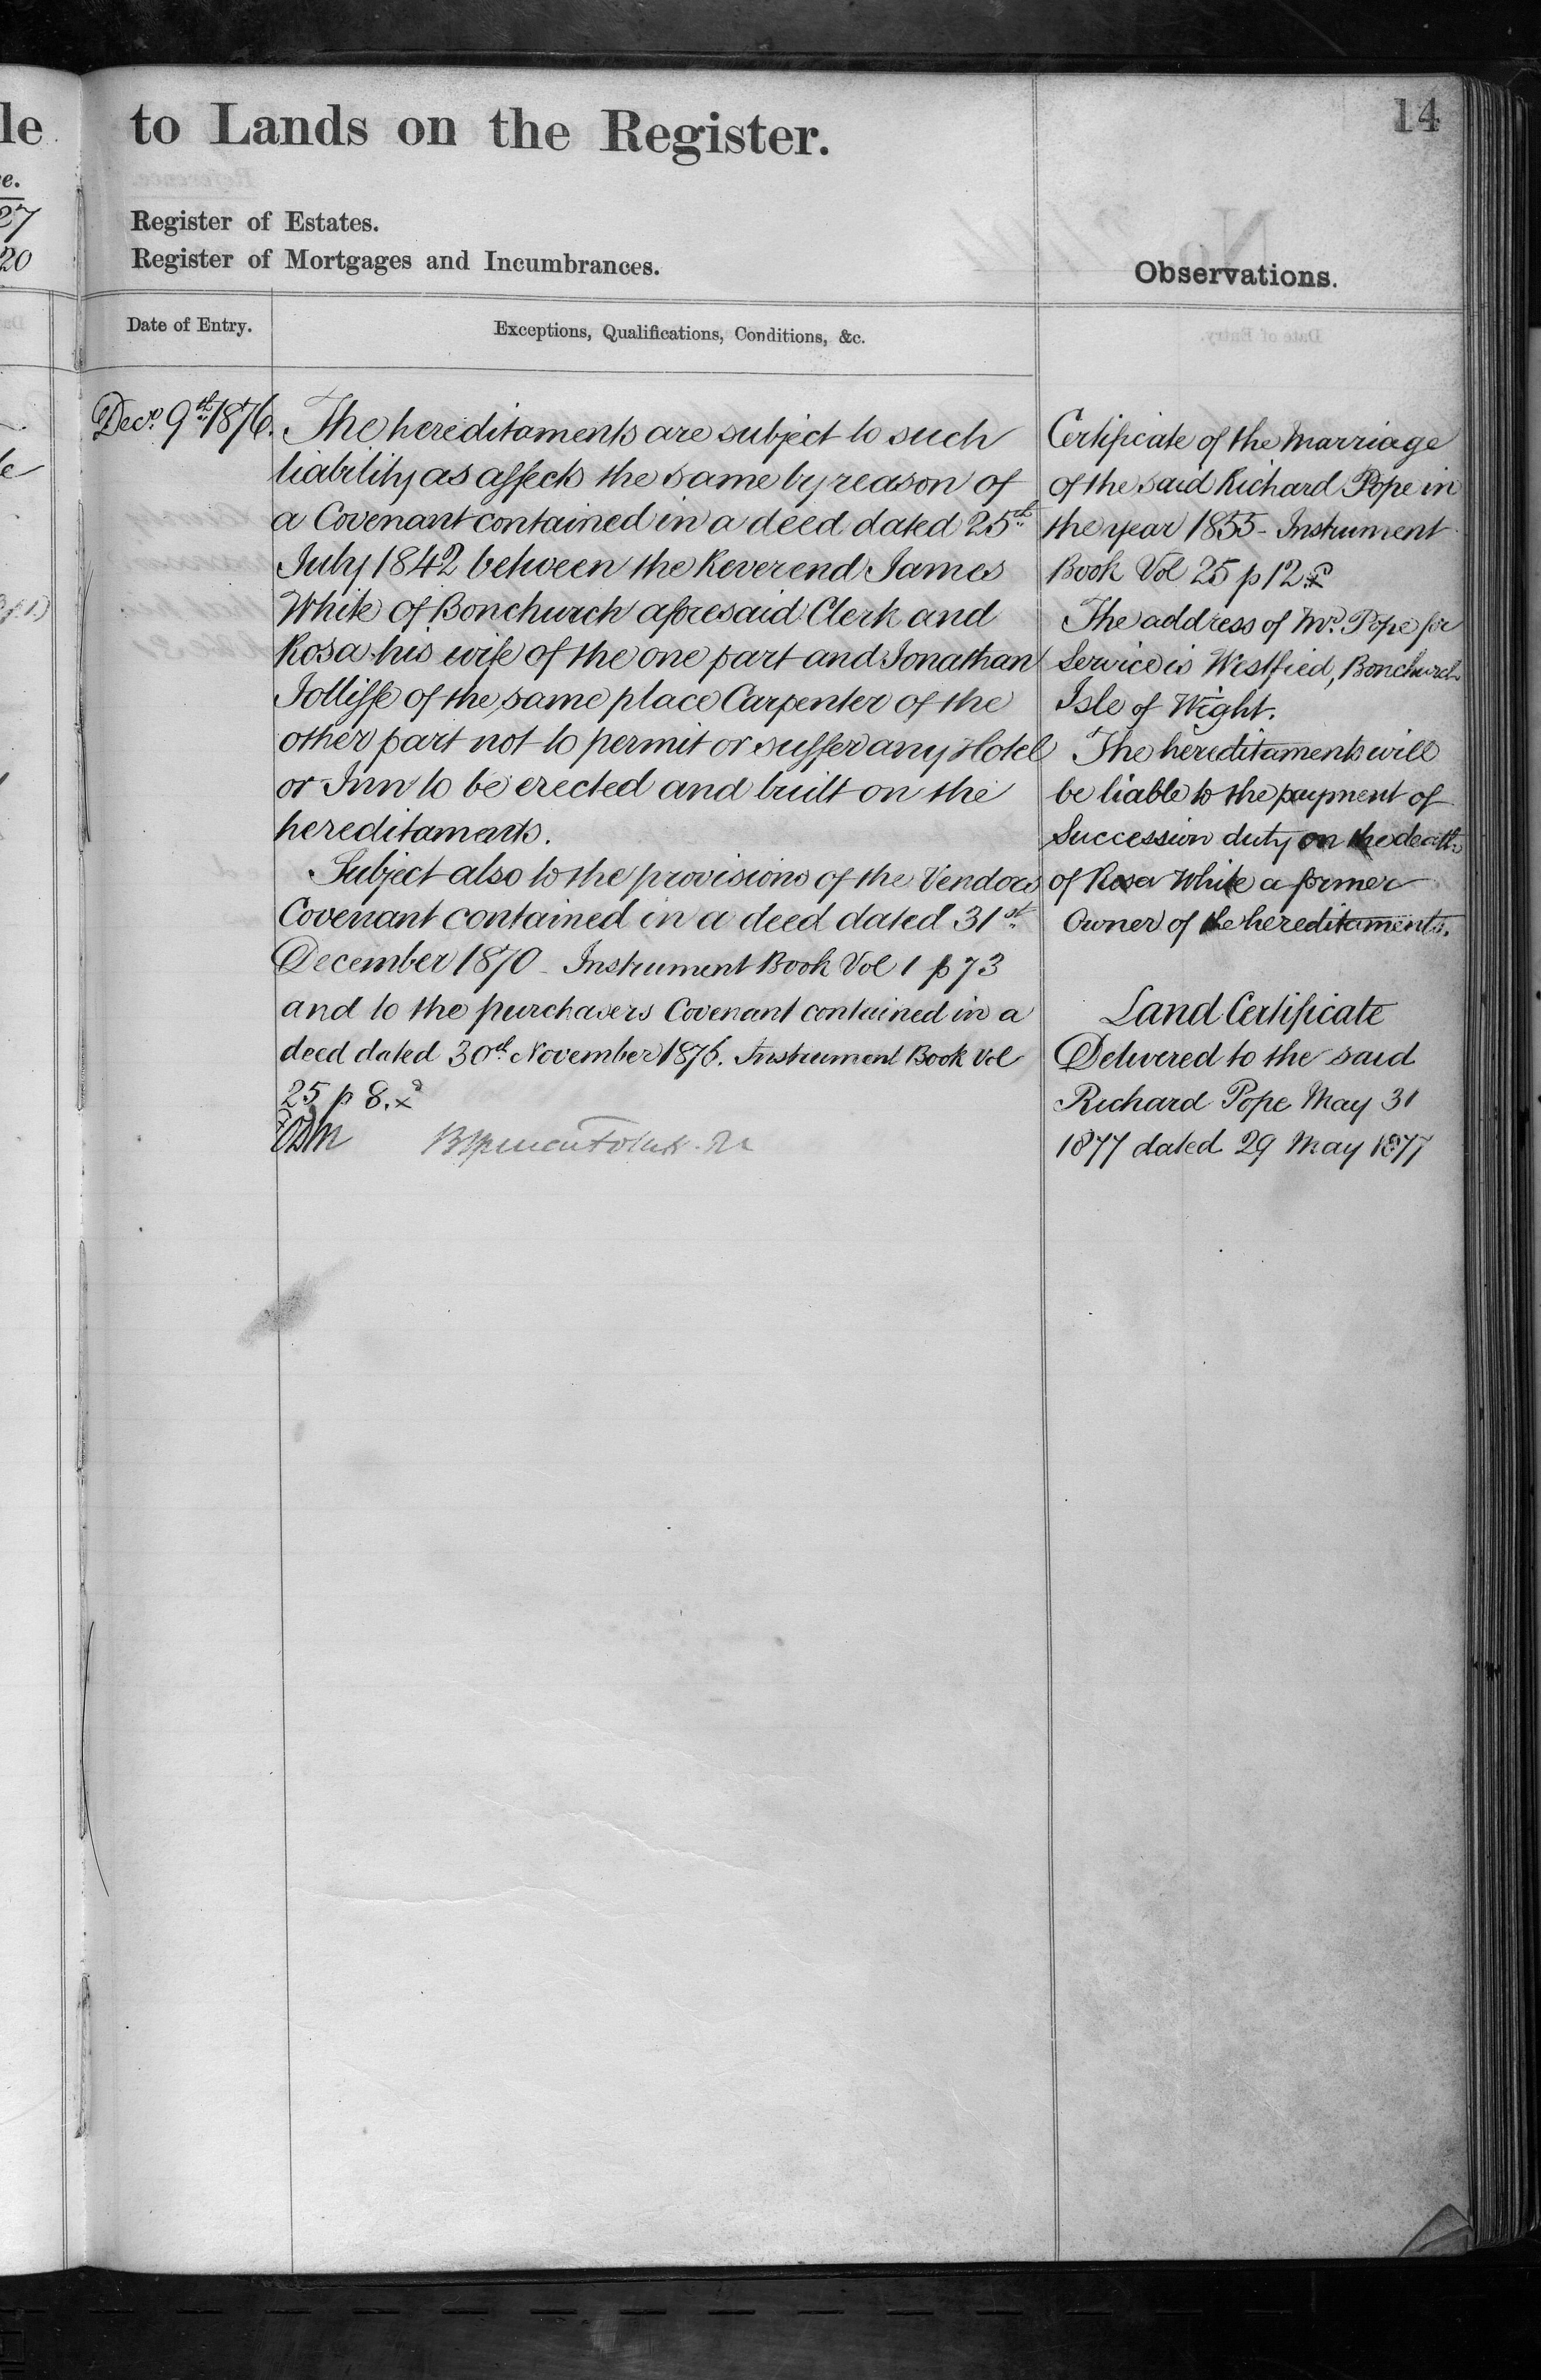 le
to Lands on the Register.
14
e.
27
20
Register of Estates.
Register of Mortgages and Incumbrances.
Observations.
Date of Entry.
Exceptions, Qualifications, Conditions, &c.
Decr. 9th 1876.
The hereditaments are subject to such
liability as affects the same by reason of
a Covenant contained in a deed dated 25th
July 1842 between the Reverend James
White of Bonchurch aforesaid Clerk and
Rosa his wife of the one part and Jonathan
Jolliffe of the same place Carpenter of the
other part not to permit or suffer any Hotel
or Inn to be erected and built on the
hereditaments.
Subject also to the provisions of the Vendors
Covenant contained in a deed dated 31st
December 1870 - Instrument Book Vol 1 p 73
and to the purchasers Covenant contained in a
deed dated 30th November 1876. Instrument Book Vol
25 p 8.
Certificate of the Marriage
of the said Richard Pope in
the year 1855 - Instrument
Book Vol 25 p 12
The address of Mr. Pope for
Service is Westfied, Bonchurch
Isle of Wight.
The hereditaments will
be liable to the payment of
Succession duty on the death
of Rosa White a former
Owner of the hereditaments.
Land Certificate
Delivered to the said
Richard Pope May 31
1877 dated 29 May 1877